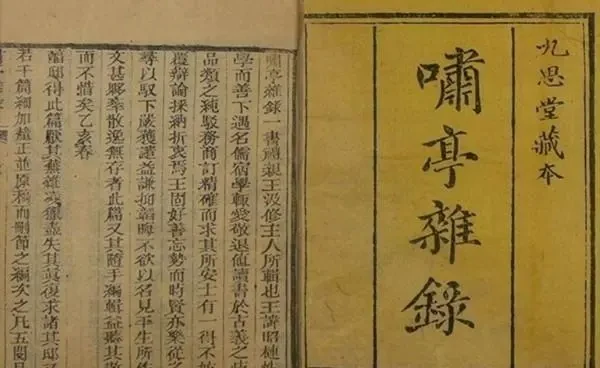 九思堂藏本
嘯亭雜錄
嘯亭雜錄一書禮親王汲修主人所輯也王諱昭槤
學而善下遇名儒宿學輒愛敬退值讀書於古義之
品類之純駁務商訂精確而求其所安士有一得不
覆辯論採納折衷焉王固好善忘勢而時賢亦樂從之
尋以馭下嚴獲譴益謙抑韜晦不欲以名見平生所
文甚夥率散逸無存者此篇又其隨手編輯益聽其散
而不惜矣乙亥春
邸得此篇厭其蕪雜凌獵盡失其眞復求諸其邸
若干篇細加釐正並原稿而刪節之編次之凡五閱月